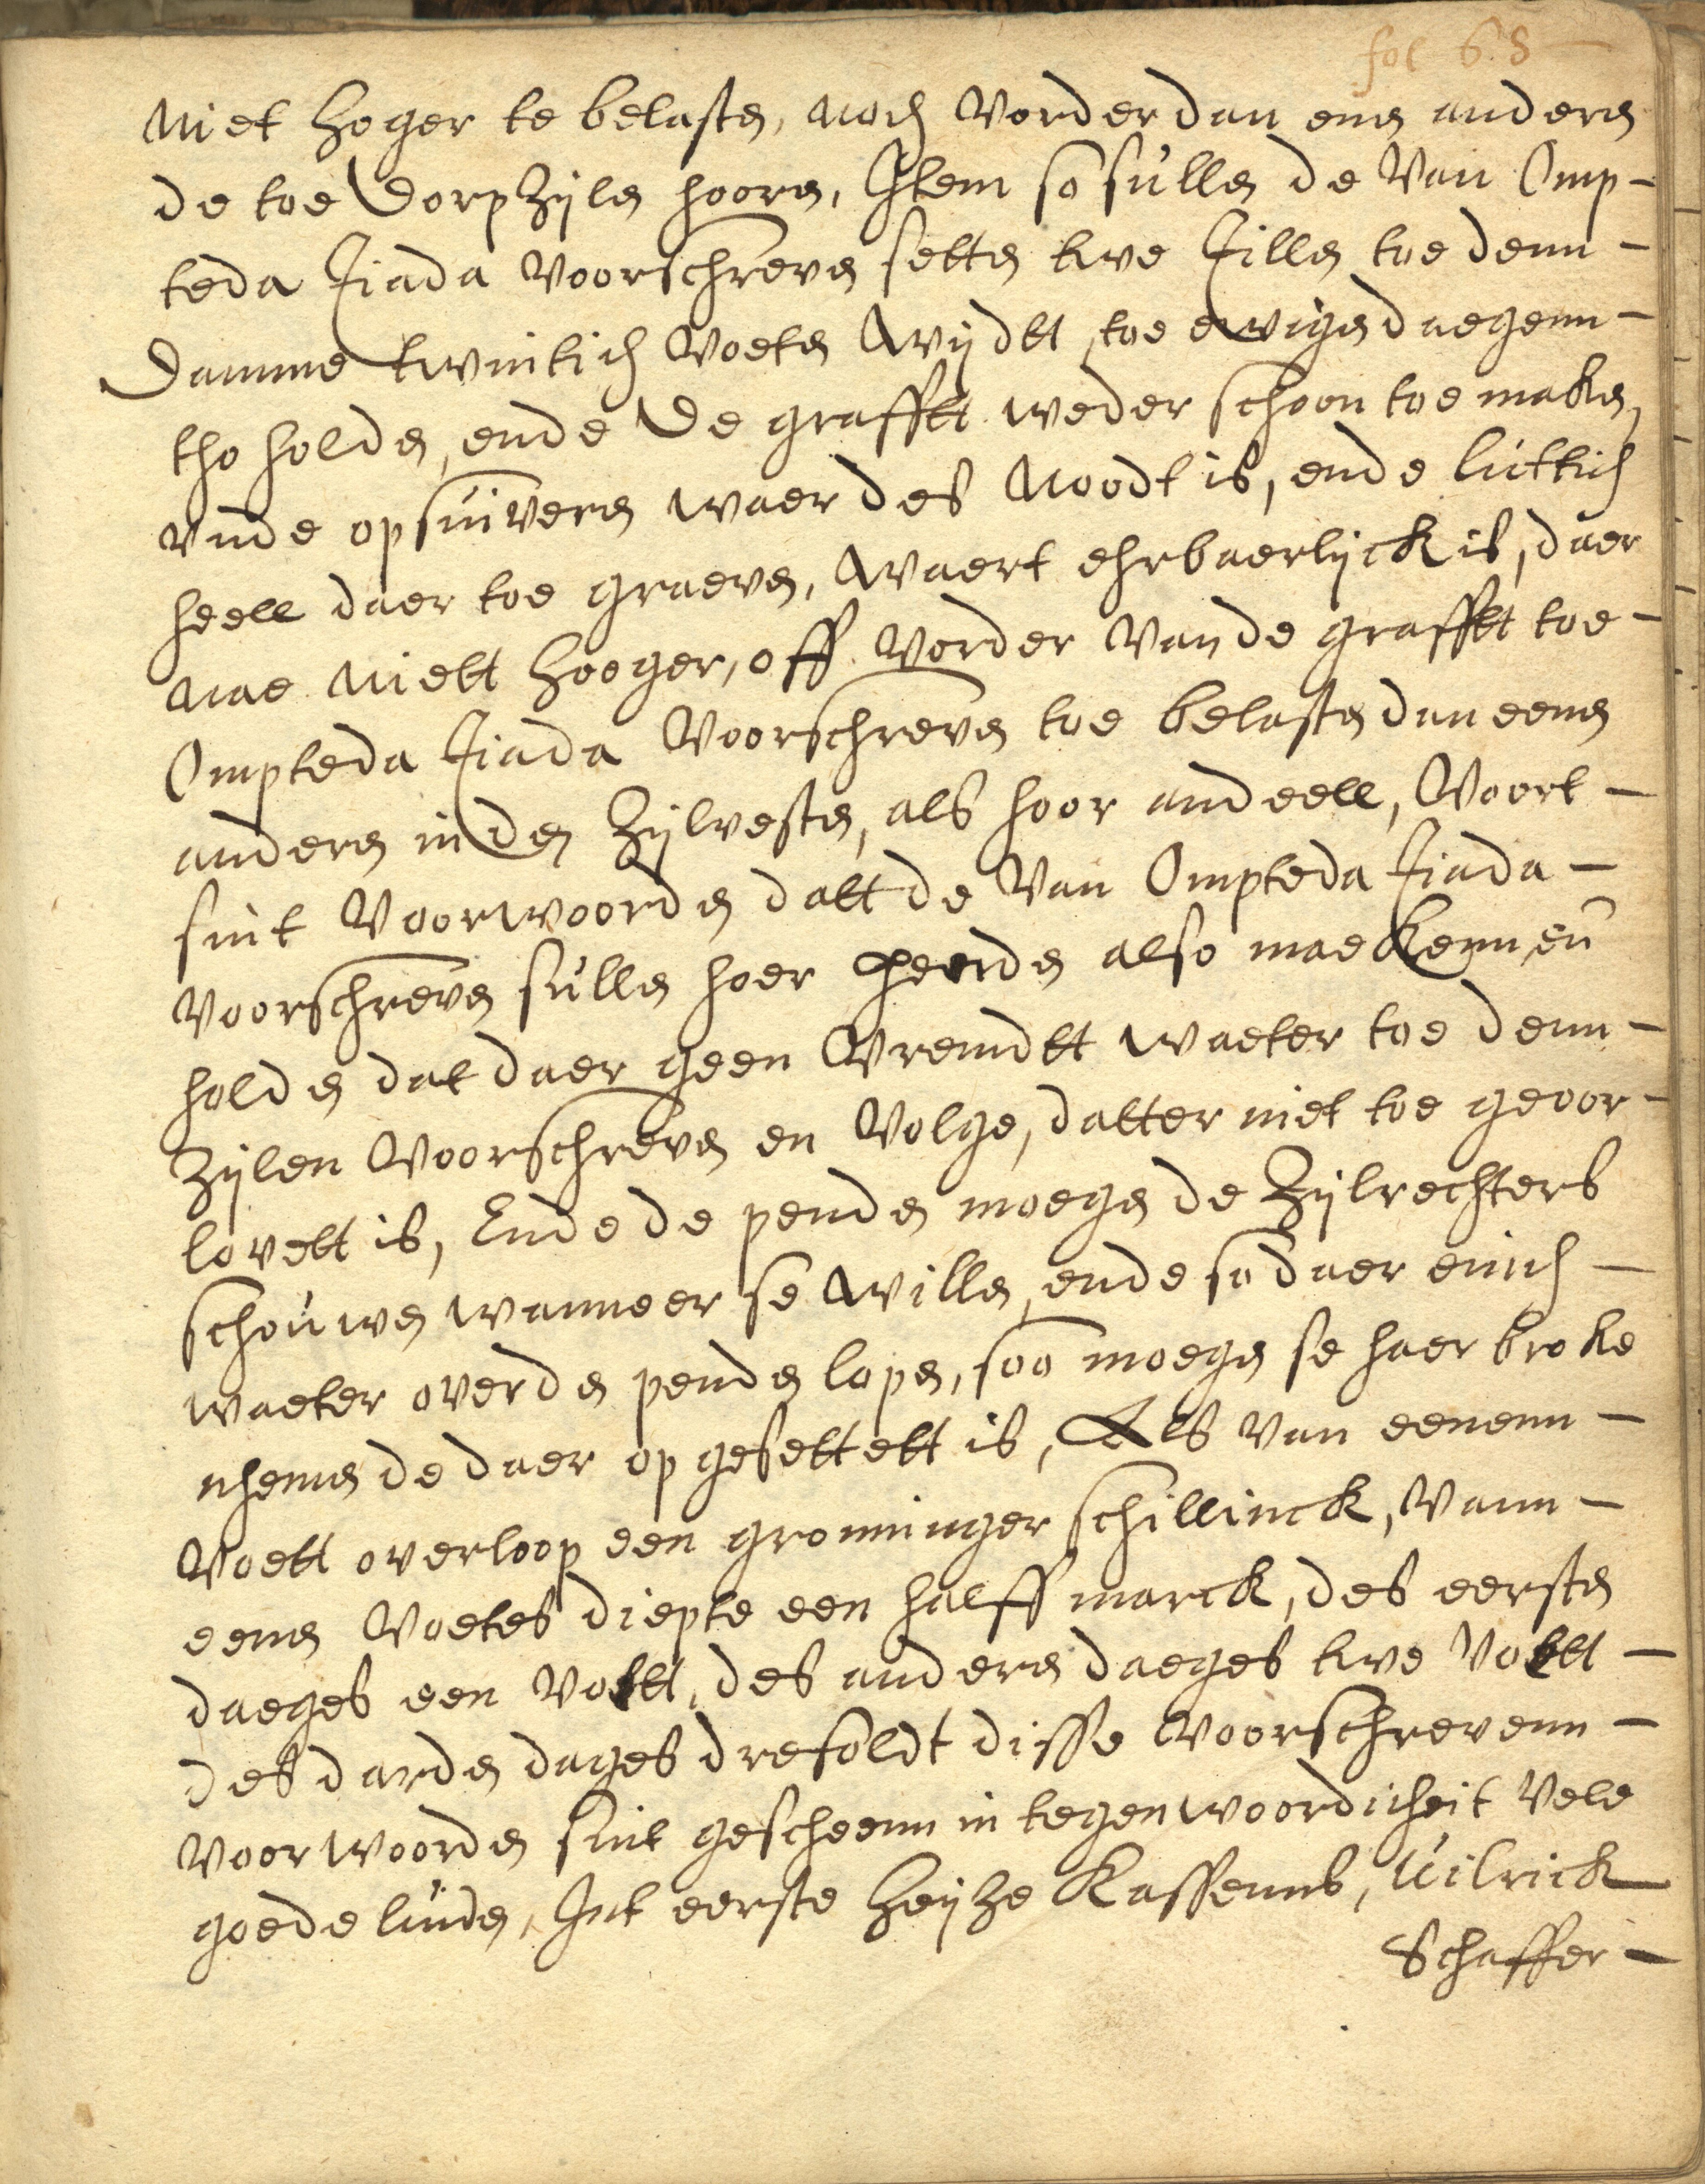 fol 68
Niet hoger te belasten, noch vorder dan enen anderen
de toe Dorpzijlen hooren, Item so sullen de van Omp-
teda Fiada voorschreven setten twe Fillen toe denn
Damme twintich voeten wijdtt, toe ewigen daegenn
tho holden, ende de grafftt weder schoon toe maken,
unde opsuiveren waer des noodt is, ende luttich
heell daer toe graeven, waert ehrbaerlijck is, daer
nae niett hooger, off vorder van de grafftt toe
Ompteda Fiada voorschreven toe belasten dan eenen
anderen in den Zijlvesten, als hoor andeell, voort
sint voorwoorden datt de van Ompteda Fiada
voorschreven sullen hoer peenden also maeckenn, en
holden dat daer geen vremdtt waeter toe denn
Zijlen voorschreven en volge, datter niet toe geoor-
lovett is, Ende de penden moegen de Zijlrechters
schouwen wanneer se willen, ende so daer einich
waeter over den penden lopen, soo moegen se haer broke
nhemen de daer op gesettett is, Als van eenenn
voett overloop een gronninger schillinck, vann
eenen voetes diepte een halff marck, des eersten
daeges een voett, des anderen daeges twe voett
des darden dages drefoldt disse voorschrevenn
voorwoorden sint gescheenn in tegenwoordicheit vele
goede luiden, Int eerste Heijze Kassenns, Uilrick
Schaffer